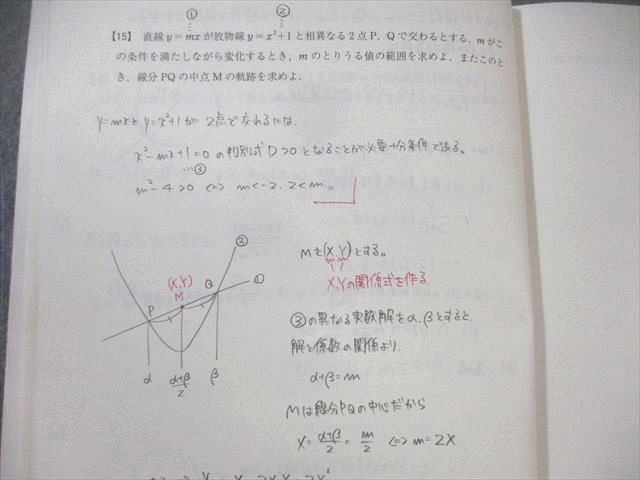 ① ②
【15】 直線 y=mx が放物線 y=x²+1 と相異なる2点P，Qで交わるとする．mがこ
の条件を満たしながら変化するとき，mのとりうる値の範囲を求めよ．またこのと
き，線分PQの中点Mの軌跡を求めよ．
y=mxとy=x²+1が 2点で交わるには、
x²-mx+1=0 の判別式 D>0 となることが必要十分条件である。
…③
m²-4>0 ⇔ m<-2, 2<m 〃
②
①
(X,Y)
M
P
Q
α
α+β/2
β
Mを(X,Y)とする。
X,Yの関係式を作る.
③の異なる実数解をα,βとすると、
解と係数の関係より.
α+β=m
Mは線分PQの中心だから
X=α+β/2=m/2 ⇔ m=2X